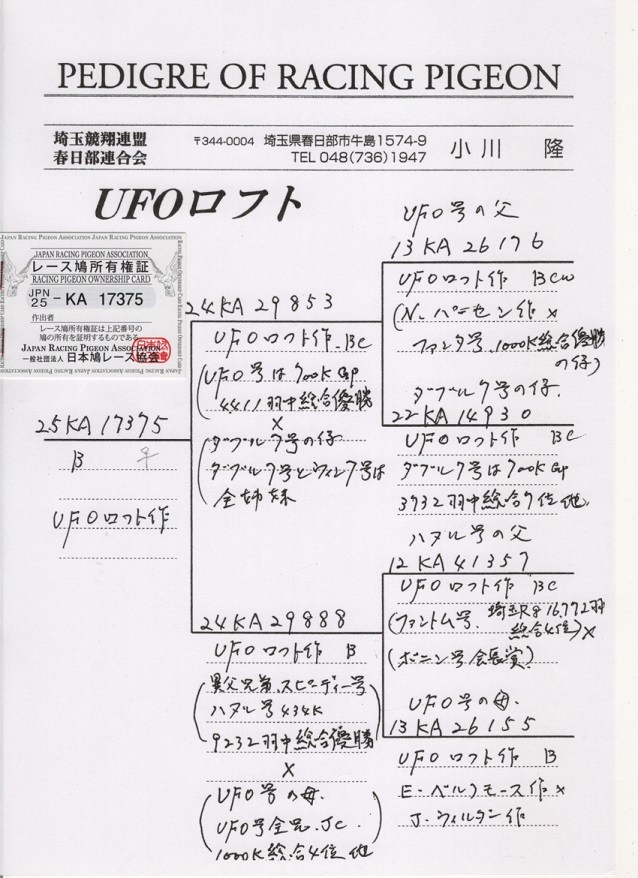 PEDIGRE OF RACING PIGEON
埼玉競翔連盟
春日部連合会
〒344-0004 埼玉県春日部市牛島1574-9
TEL 048(736)1947
小川 隆
UFOロフト
JAPAN RACING PIGEON ASSOCIATION
レース鳩所有権証
RACING PIGEON OWNERSHIP CARD
JPN 25 - KA 17375
作出者
レース鳩所有権証は上記番号の
鳩の所有を証明するものである。
JAPAN RACING PIGEON ASSOCIATION
一般社団法人 日本鳩レース協会
25KA17375
B ♀
UFOロフト作
24KA29853
UFOロフト作.BC
(UFO号は700K Gp
4411羽中総合優勝
×
(ダブル7号の仔
ダブル7号とウィン7号は
全姉妹
24KA29888
UFOロフト作 B
(異父兄弟.スピーディー号
ハヌル号434K
9232羽中総合優勝)
×
(UFO号の母.
UFO号全兄.JC.
1000K総合4位 他)
UFO号の父
13KA26176
UFOロフト作 BCW
(N.パーセン作×
ファンタ号.1000K総合優勝
の仔)
ダブル7号の仔.
22KA14930
UFOロフト作 BC
ダブル7号は700K Gp
3732羽中総合7位他.
ハヌル号の父
12KA41357
UFOロフト作 BC
(ファントム号. 埼玉Rg16,772羽
総合4位)×
(ボニン号会長賞)
UFO号の母.
13KA26155
UFOロフト作 B
E-ベルフモース作×
J-ウィルダン作